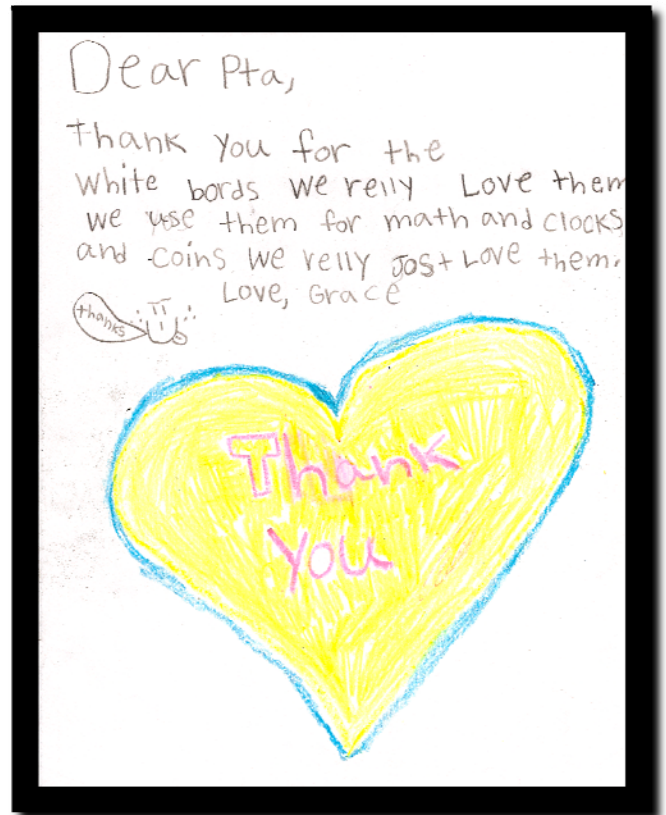 Dear Pta,
Thank you for the
white bords we relly Love them
we use them for math and clocks
and coins we relly Jost Love them.
Love, Grace
thanks
Thank
You